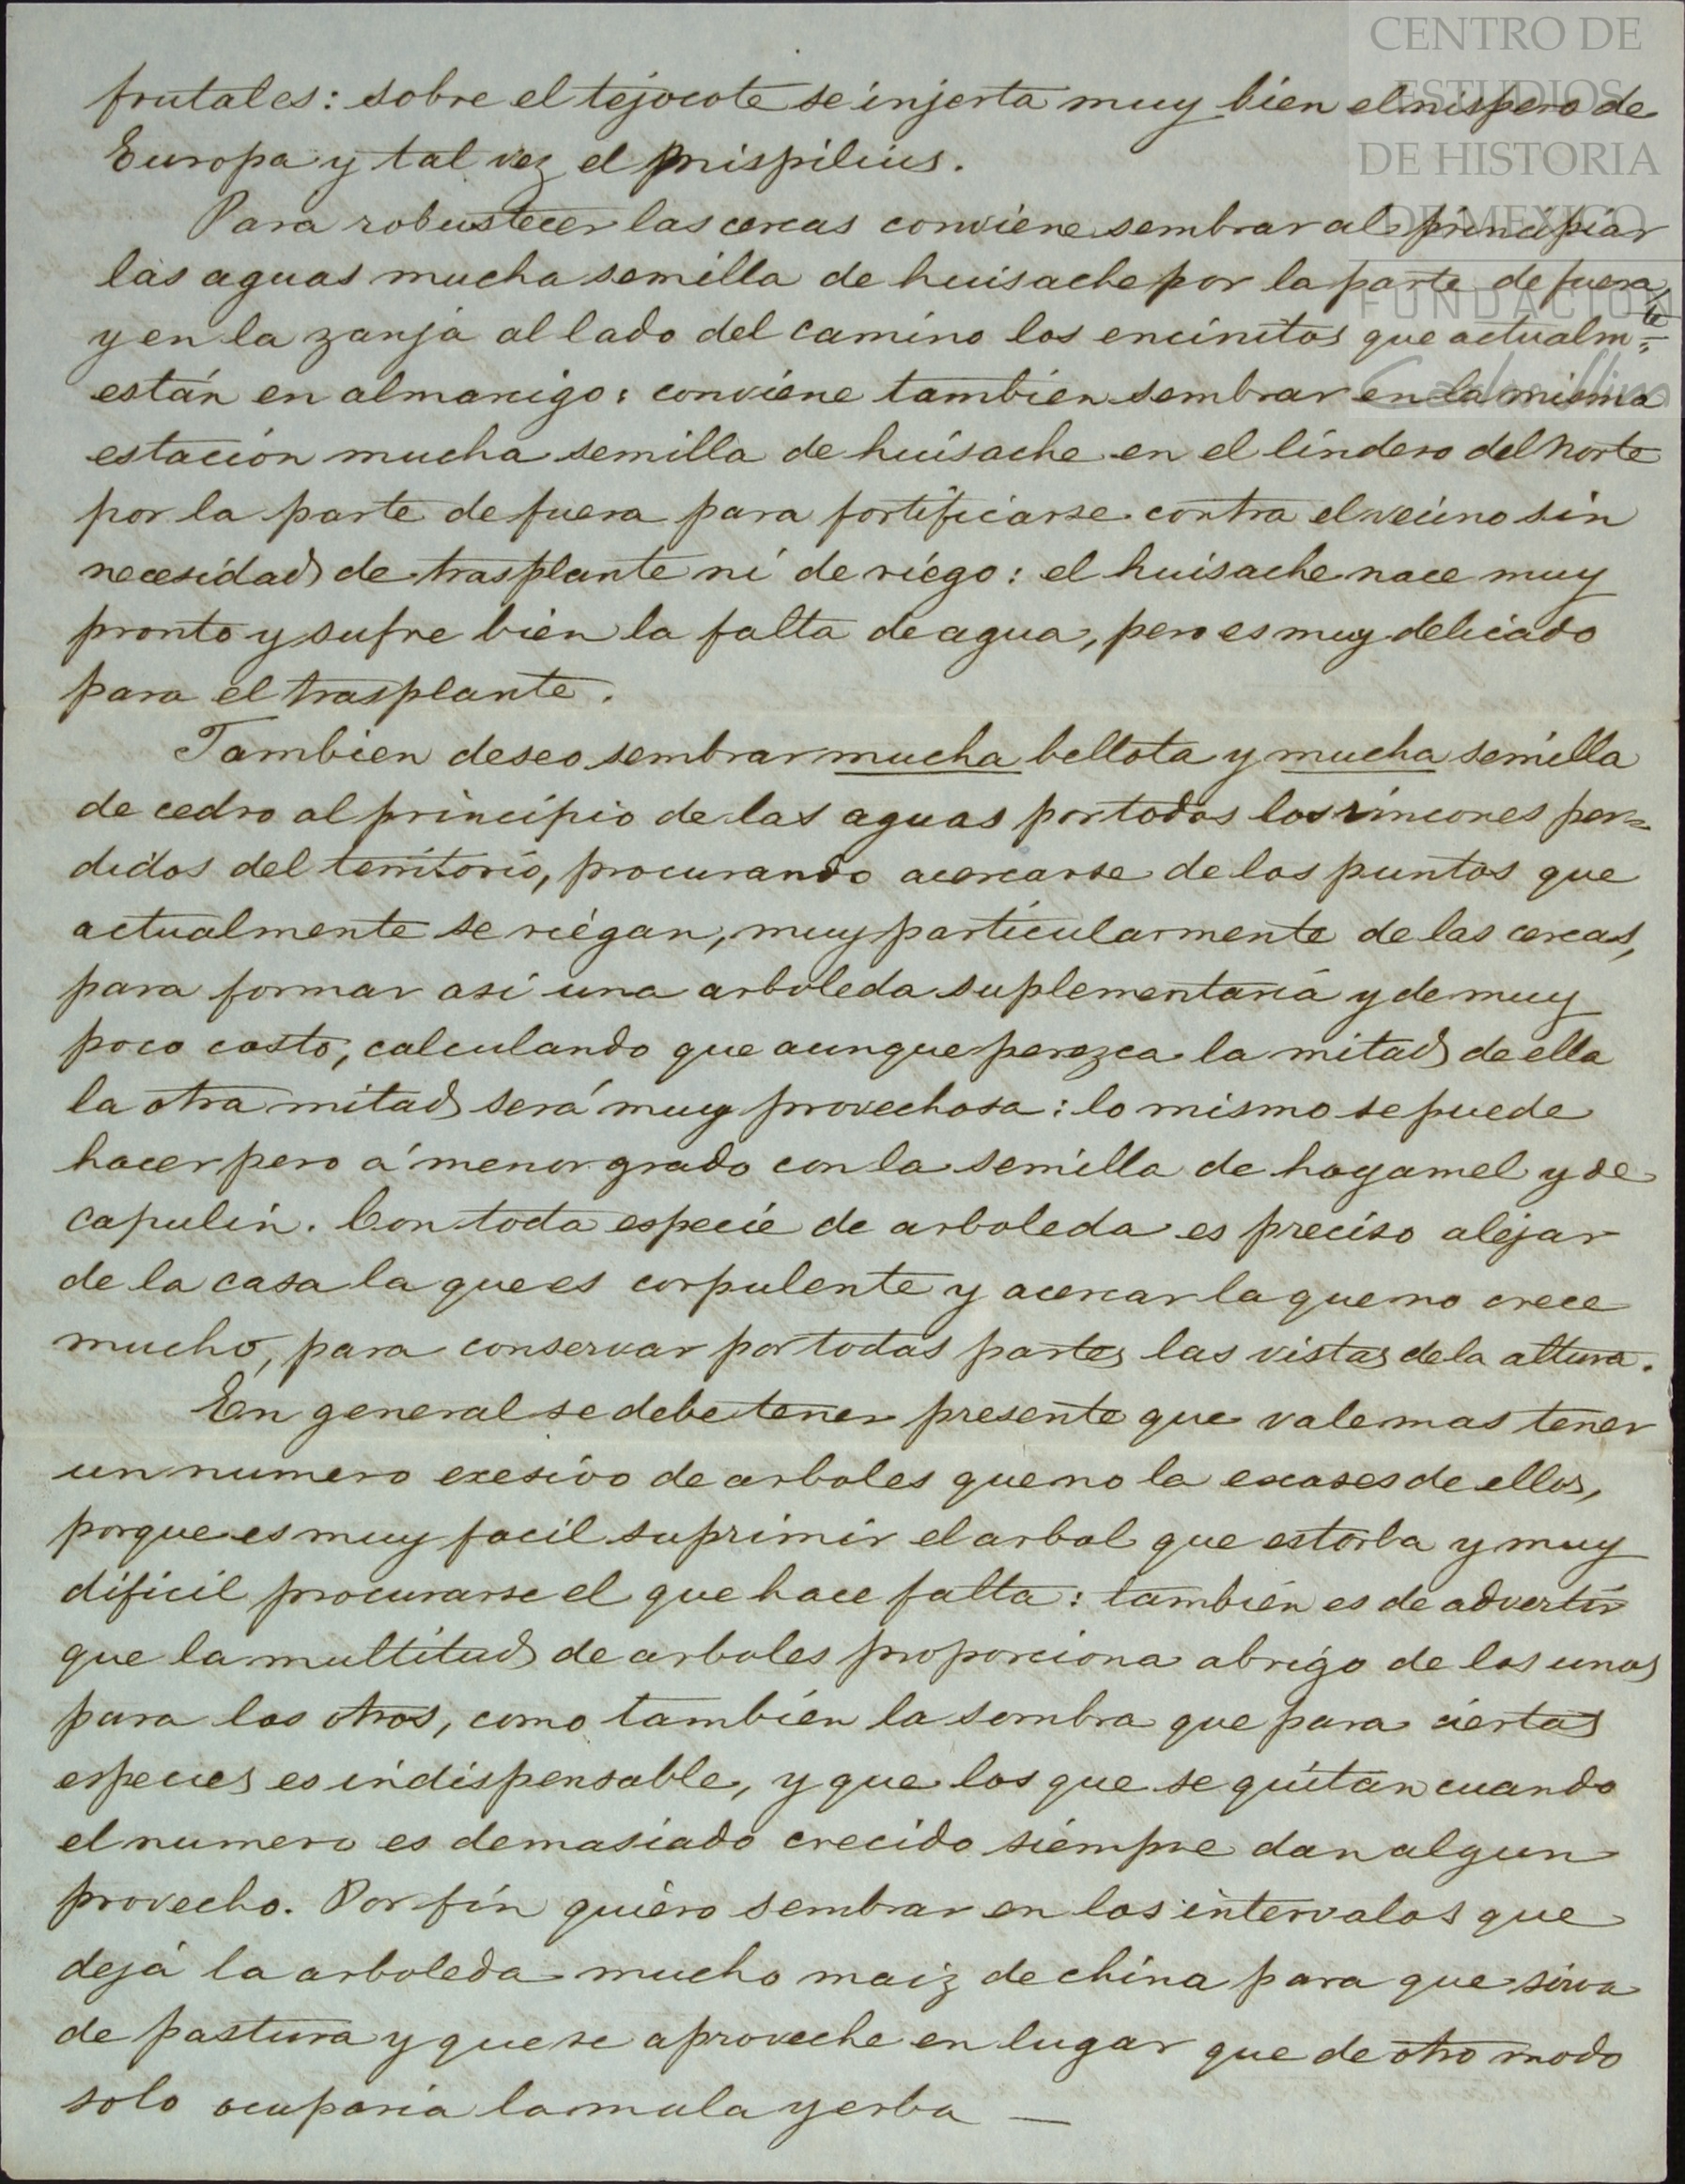 CENTRO DE
ESTUDIOS
DE HISTORIA
DE MEXICO
FUNDACION
Carlos Slim
frutales: sobre el tejocote se injerta muy bien el nispero de
Europa y tal vez el mispilius.
Para robustecer las cercas conviene sembrar al principiar
las aguas mucha semilla de huisache por la parte de fuera,
y en la zanja al lado del camino los encinitos que actualm.te
están en almarcigo: conviene tambien sembrar en la misma
estación mucha semilla de huisache en el lindero del Norte
por la parte de fuera para fortificarse contra el vecino sin
necesidad de trasplante ni de riego: el huisache nace muy
pronto y sufre bien la falta de agua, pero es muy delicado
para el trasplante.
Tambien deseo sembrar mucha bellota y mucha semilla
de cedro al principio de las aguas por todos los rincones per=
didos del territorio, procurando acercarse de los puntos que
actualmente se riegan, muy particularmente de las cercas,
para formar asi una arboleda suplementaria y de muy
poco costo, calculando que aunque perezca la mitad de ella
la otra mitad será muy provechosa: lo mismo se puede
hacer pero á menor grado con la semilla de hoyamel y de
capulin. Con toda especie de arboleda es preciso alejar
de la casa la que es corpulente y acercar la que no crece
mucho, para conservar por todas partes las vistas de la altura.
En general se debe tener presente que vale mas tener
un numero exesivo de arboles que no la escases de ellos,
porque es muy facil suprimir el arbol que estorba y muy
dificil procurarse el que hace falta: también es de advertir
que la multitud de arboles proporciona abrigo de los unos
para los otros, como también la sombra que para ciertas
especies es indispensable, y que los que se quitan cuando
el numero es demasiado crecido siempre dan algun
provecho. Por fin quiero sembrar en los intervalos que
deja la arboleda mucho maiz de china para que sirva
de pastura y que se aproveche en lugar que de otro modo
solo ocuparia la mala yerba —